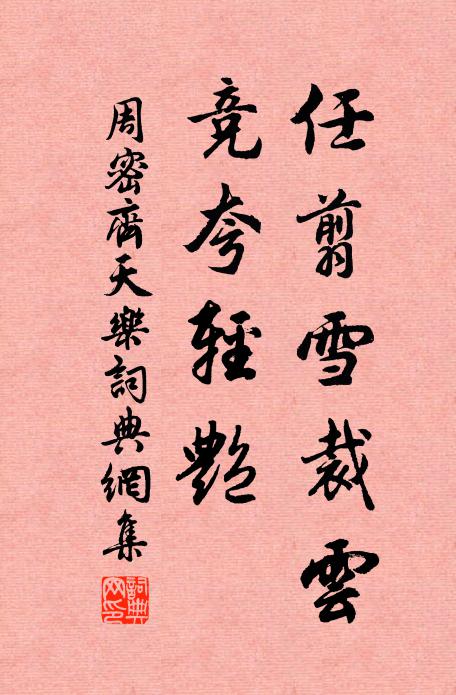 任翦雪裁雲
競夸輕艷
周密齊天樂詞典網集
詞典网印